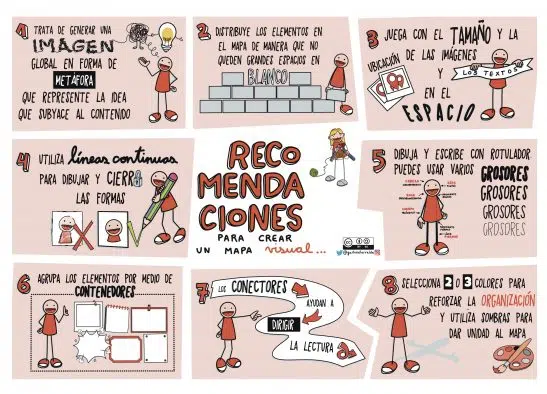 1 TRATA DE GENERAR UNA
IMAGEN
GLOBAL EN FORMA DE
METÁFORA
QUE REPRESENTE LA IDEA
QUE SUBYACE AL CONTENIDO
2 DISTRIBUYE LOS ELEMENTOS EN
EL MAPA DE MANERA QUE NO
QUEDEN GRANDES ESPACIOS EN
BLANCO
3 JUEGA CON EL TAMAÑO Y LA
UBICACIÓN DE LAS IMÁGENES
Y LOS TEXTOS
EN EL
ESPACIO
4 UTILIZA líneas continuas
PARA DIBUJAR Y CIERRA
LAS FORMAS
RECO
MENDA
CIONES
PARA CREAR
UN MAPA visual...
5 DIBUJA Y ESCRIBE CON ROTULADOR
PUEDES USAR VARIOS GROSORES
GROSORES
GROSORES
GROSORES
6 AGRUPA LOS ELEMENTOS POR MEDIO DE
CONTENEDORES
7 LOS CONECTORES
AYUDAN A
DIRIGIR
LA LECTURA
8 SELECCIONA 2 O 3 COLORES PARA
REFORZAR LA ORGANIZACIÓN
Y UTILIZA SOMBRAS PARA
DAR UNIDAD AL MAPA